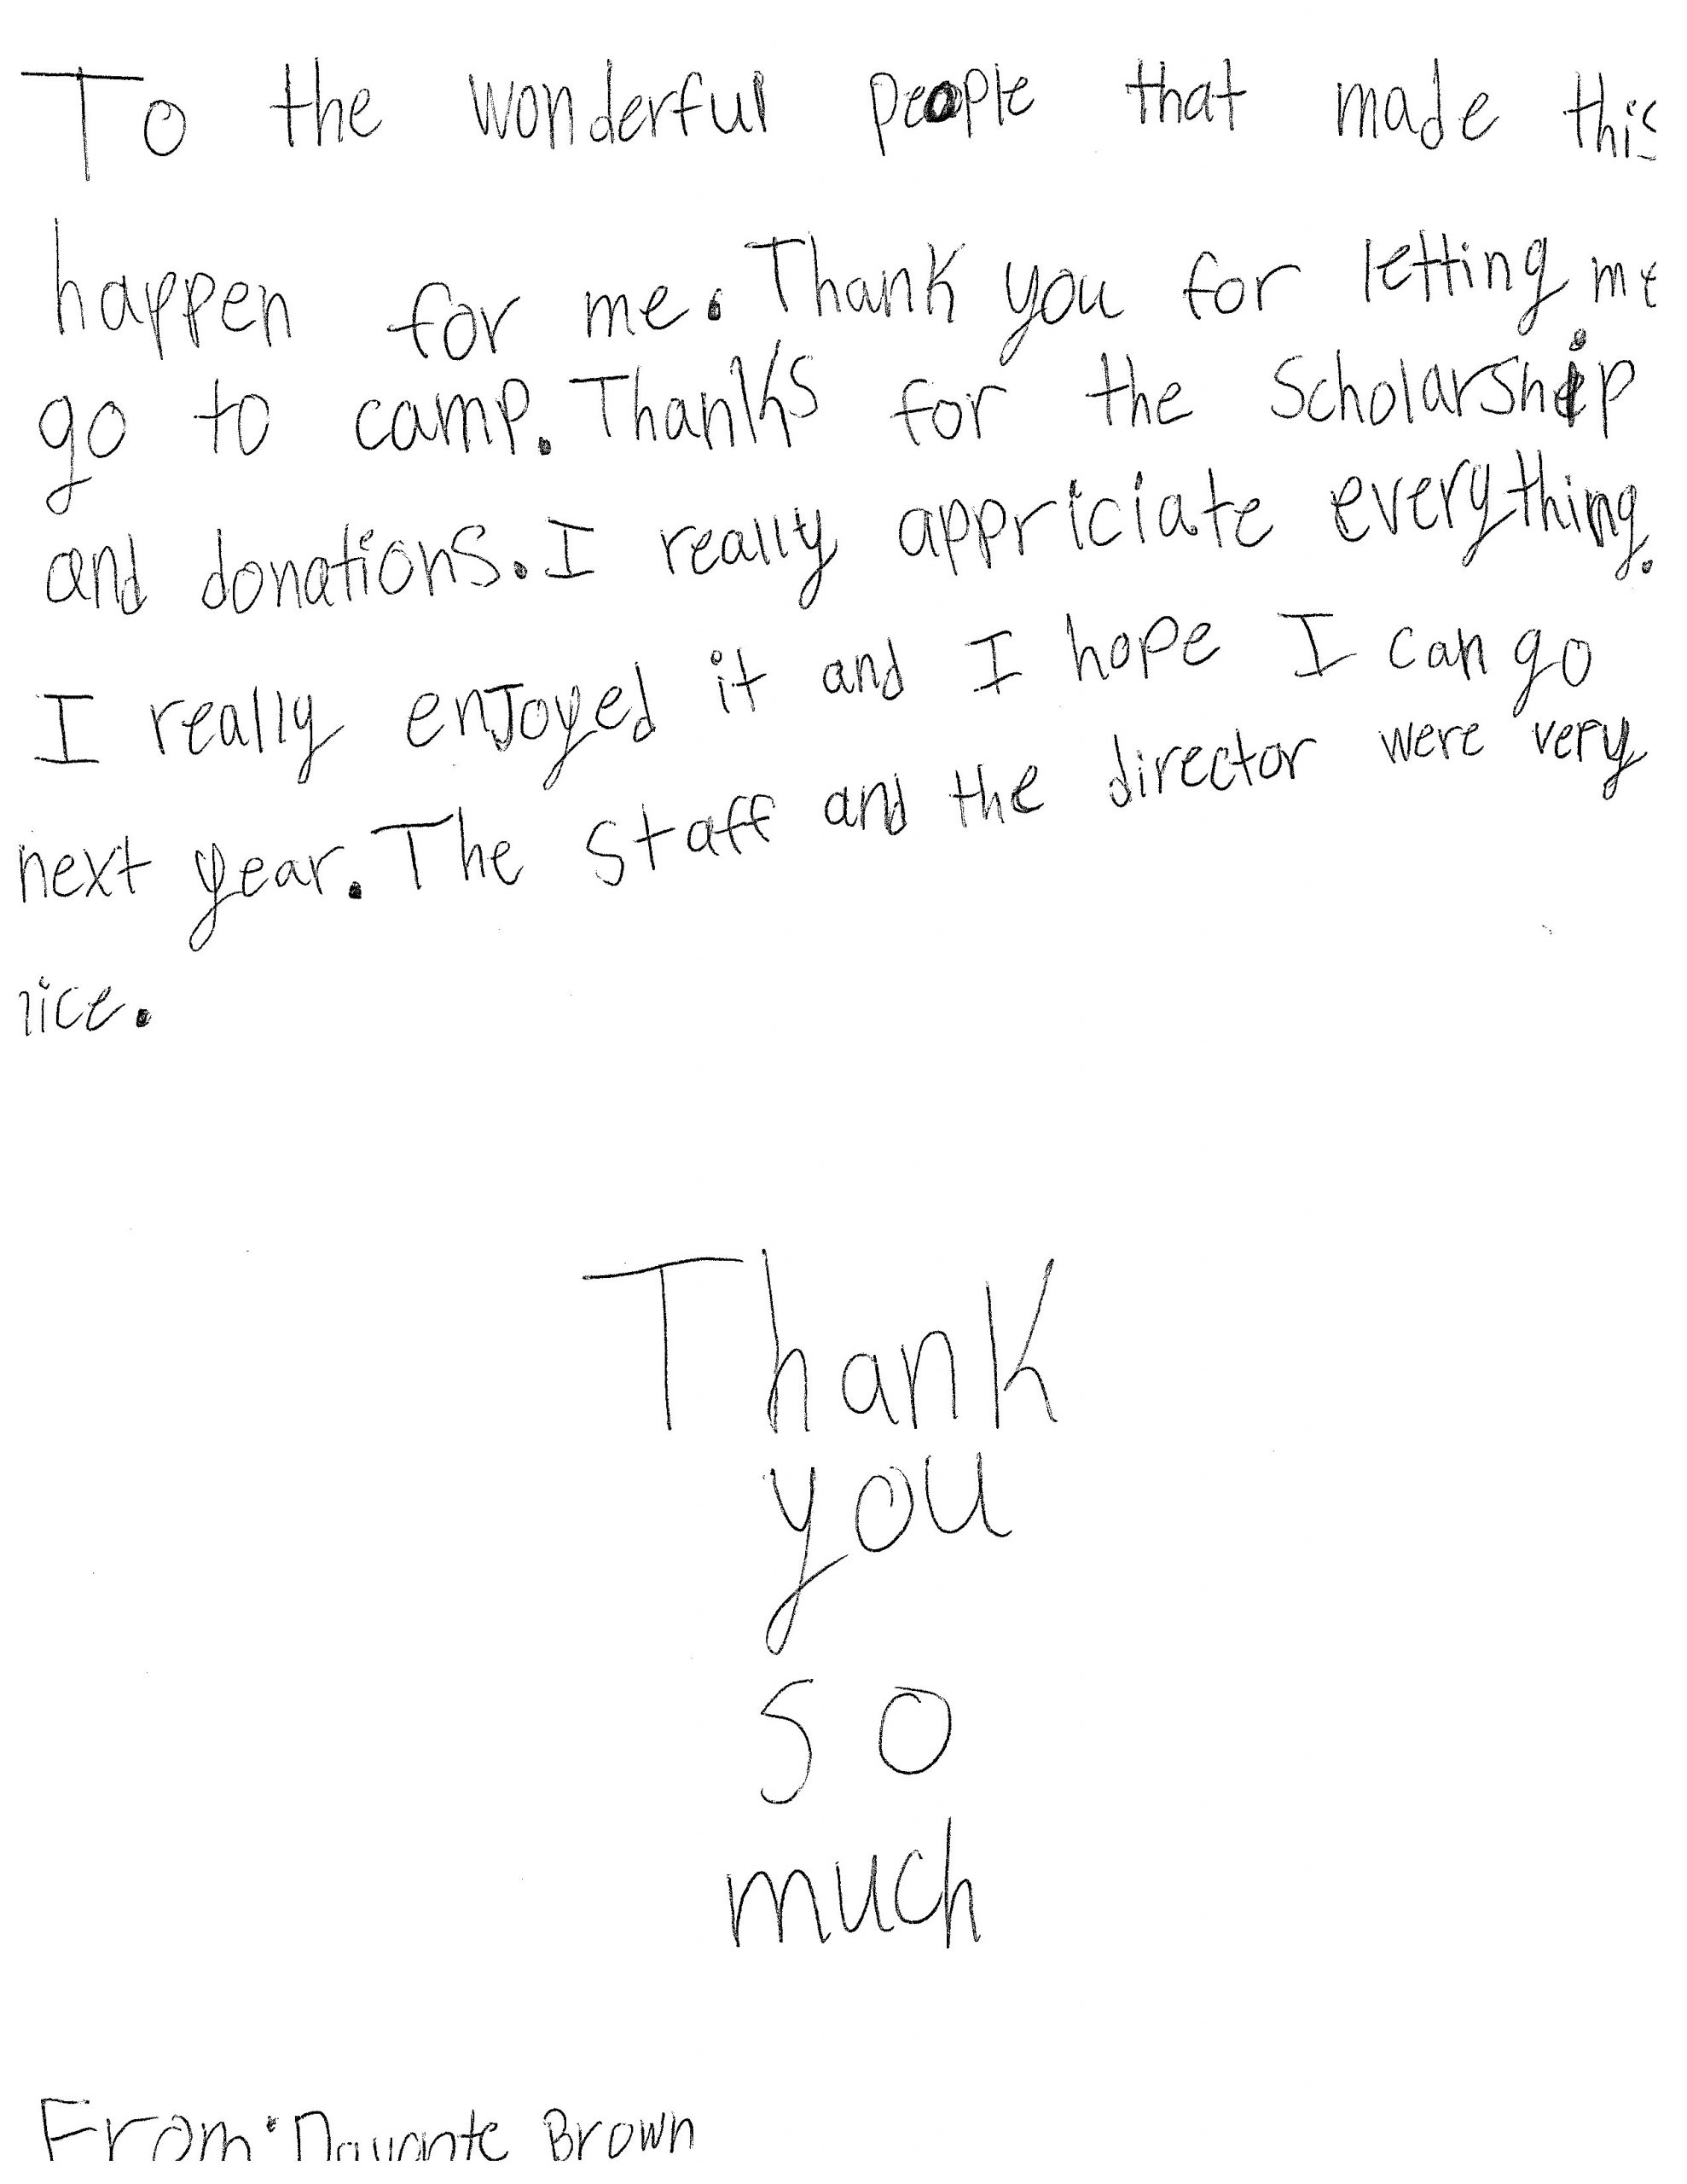 To the wonderful people that made this
happen for me. Thank you for letting me
go to camp. Thanks for the Scholarship
and donations. I really appriciate everything.
I really enJoyed it and I hope I can go
next year. The Staff and the director were very
nice.
Thank
you
so
much
From: Davante Brown